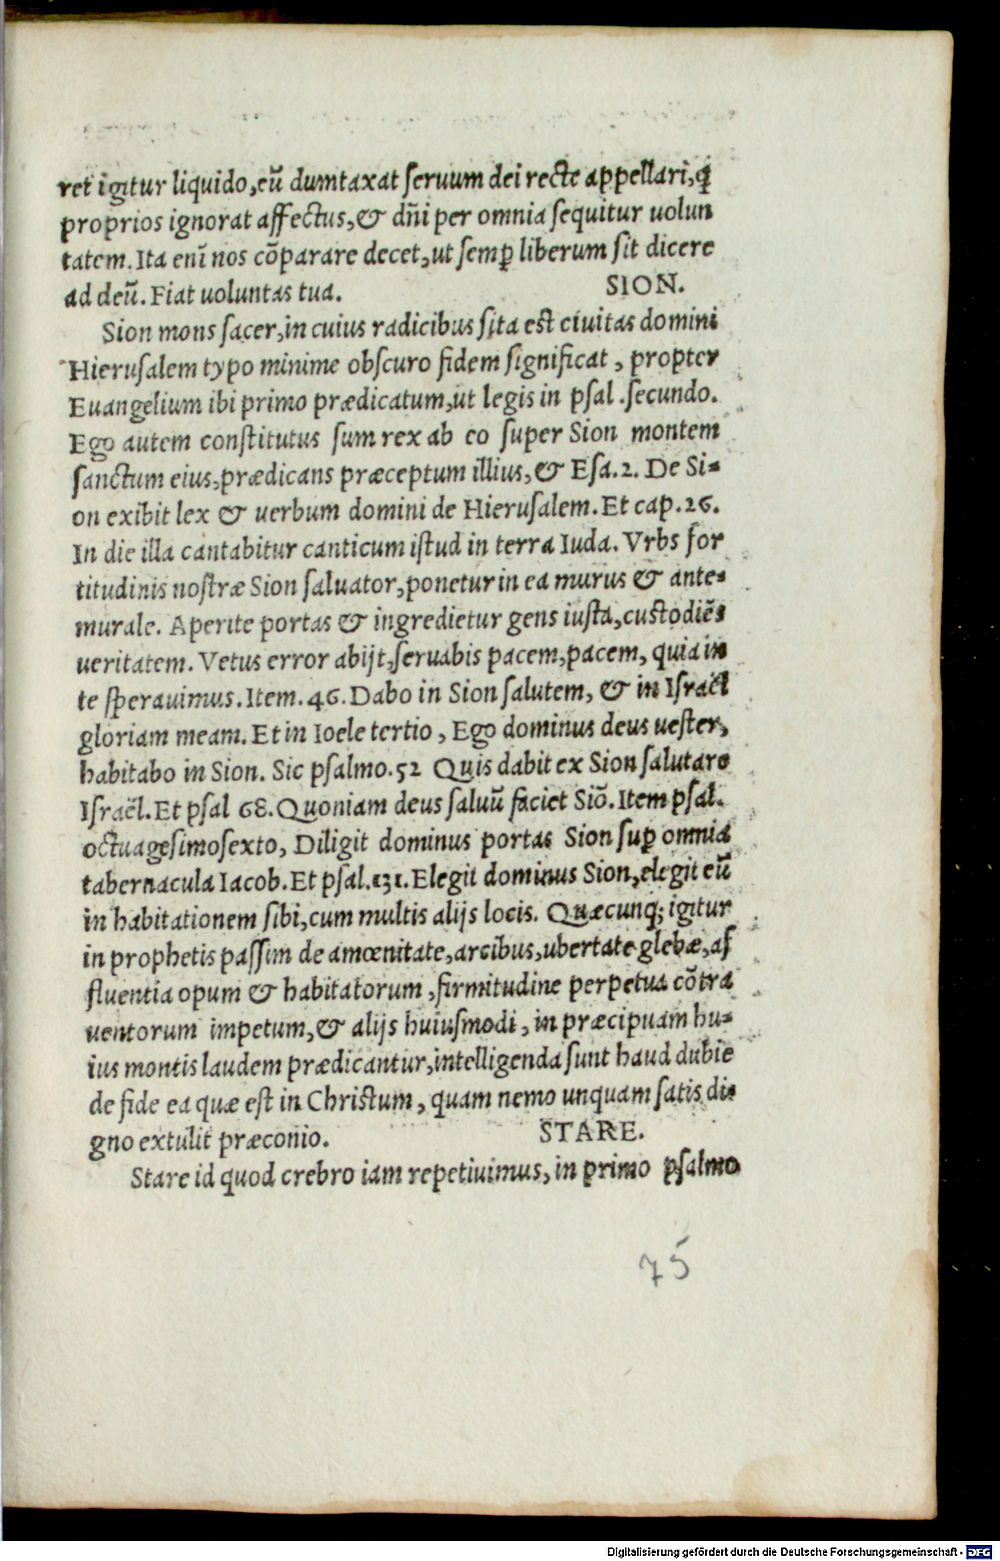 ret igitur liquido, eū dumtaxat ſeruum dei recte appellari, ꝗ
proprios ignorat affectus, & dñi per omnia ſequitur uolun
tatem. Ita enī nos cōparare decet, ut ſemꝑ liberum ſit dicere
ad deū. Fiat uoluntas tua. SION.
Sion mons ſacer, in cuius radicibus ſita eſt ciuitas domini
Hieruſalem typo minime obſcuro fidem ſignificat, propter
Euangelium ibi primo prædicatum, ut legis in pſal. ſecundo.
Ego autem conſtitutus ſum rex ab eo ſuper Sion montem
ſanctum eius, prædicans præceptum illius, & Eſa. 2. De Si-
on exibit lex & uerbum domini de Hieruſalem. Et cap. 26.
In die illa cantabitur canticum iſtud in terra Iuda. Vrbs for
titudinis noſtræ Sion ſaluator, ponetur in ea murus & ante-
murale. Aperite portas & ingredietur gens iuſta, cuſtodiēs
ueritatem. Vetus error abijt, ſeruabis pacem, pacem, quia in
te ſperauimus. Item. 46. Dabo in Sion ſalutem, & in Iſraël
gloriam meam. Et in Ioele tertio, Ego dominus deus ueſter,
habitabo in Sion. Sic pſalmo. 52 Quis dabit ex Sion ſalutare
Iſraël. Et pſal 68. Quoniam deus ſaluū faciet Siō. Item pſal.
octuageſimoſexto, Diligit dominus portas Sion ſuꝑ omnia
tabernacula Iacob. Et pſal. 131. Elegit dominus Sion, elegit eū
in habitationem ſibi, cum multis alijs locis. Quæcunq; igitur
in prophetis paſſim de amœnitate, arcibus, ubertate glebæ, af
fluentia opum & habitatorum, firmitudine perpetua cōtra
uentorum impetum, & alijs huiuſmodi, in præcipuam hu-
ius montis laudem prædicantur, intelligenda ſunt haud dubie
de fide ea quæ eſt in Chriſtum, quam nemo unquam ſatis di-
gno extulit præconio. STARE.
Stare id quod crebro iam repetiuimus, in primo pſalmo
75
Digitalisierung gefördert durch die Deutsche Forschungsgemeinschaft - DFG